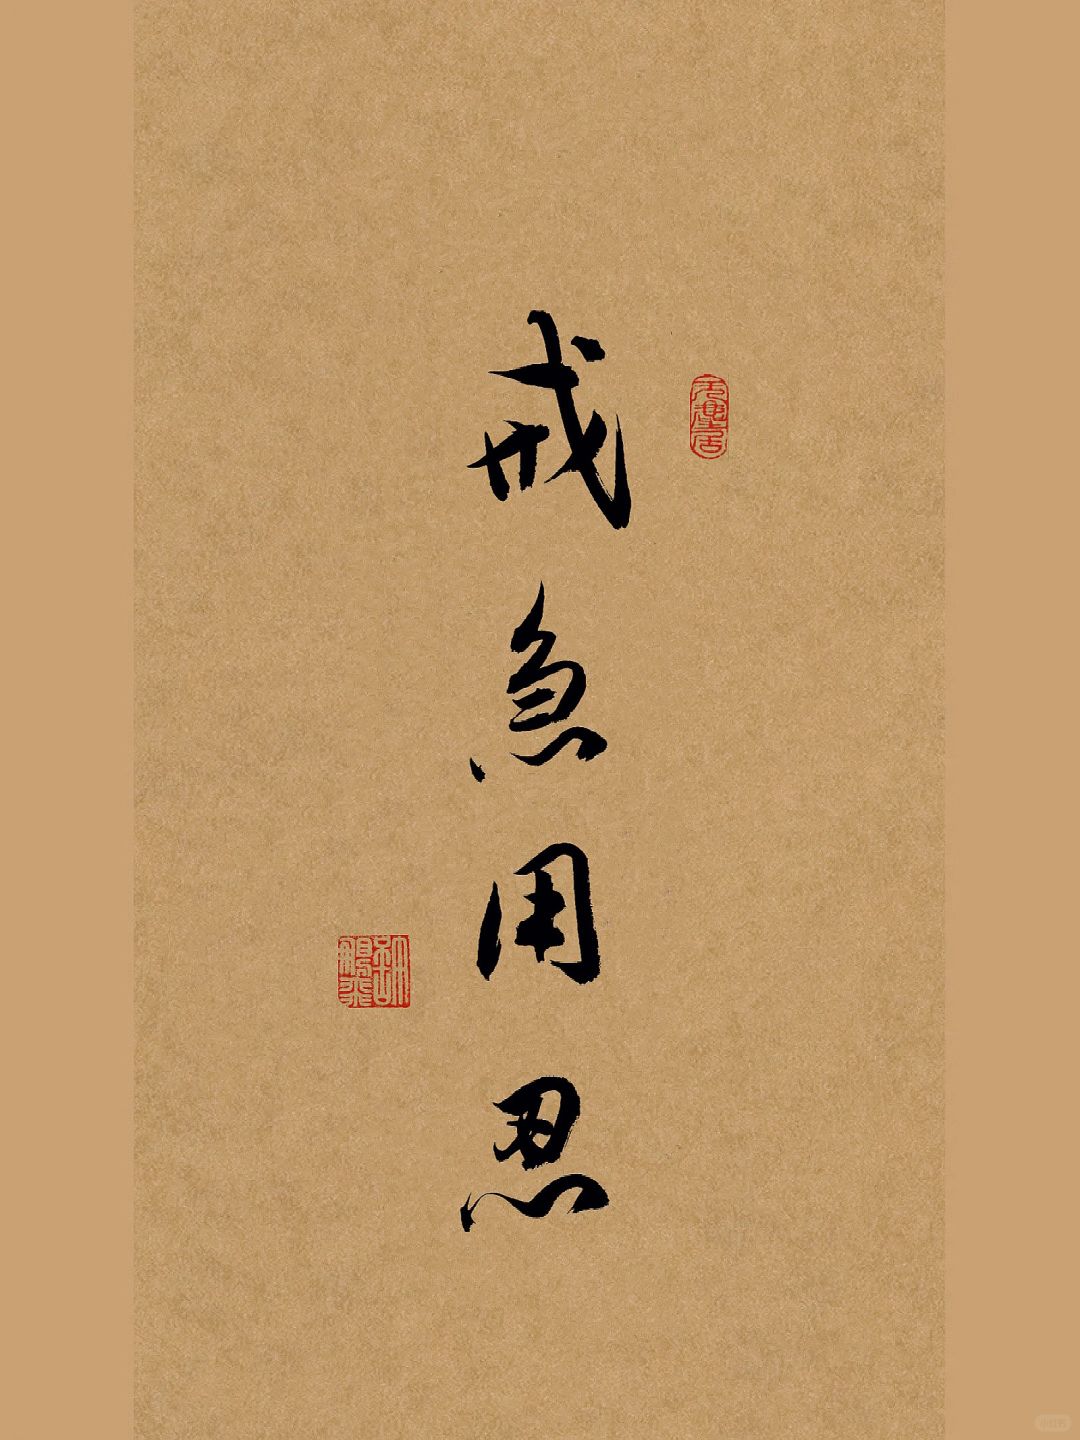 戒急用忍